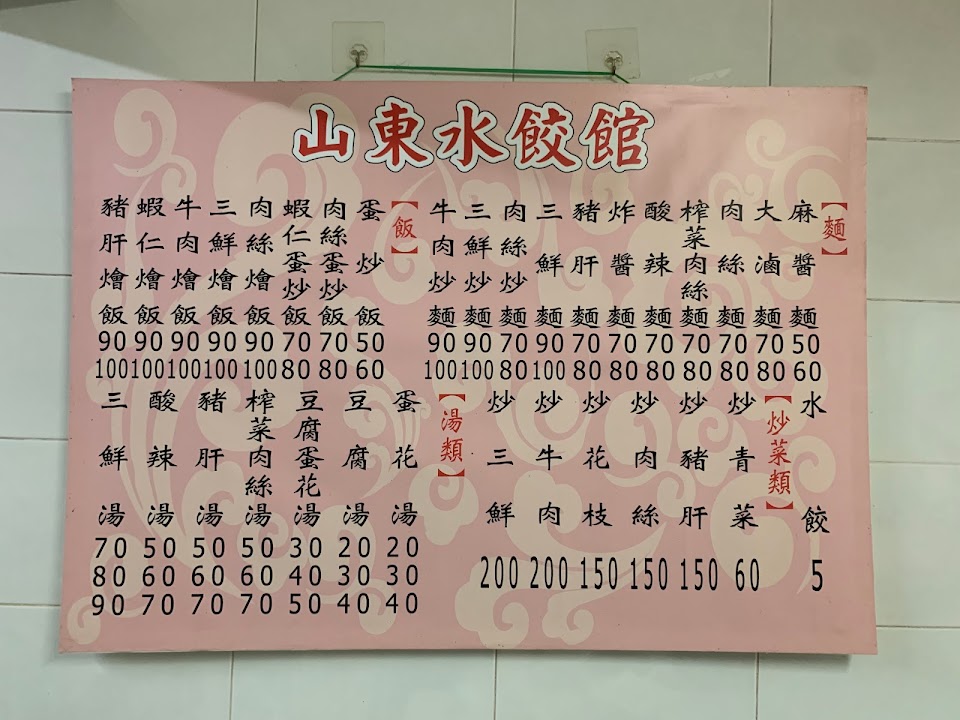 山東水餃館
【麵】
麻醬麵 50 60
大滷麵 70 80
肉絲麵 70 80
榨菜肉絲麵 70 80
酸辣麵 70 80
炸醬麵 70 80
豬肝麵 70 80
三鮮麵 90 100
肉絲炒麵 70 80
三鮮炒麵 90 100
牛肉炒麵 90 100
【飯】
蛋炒飯 50 60
肉絲蛋炒飯 70 80
蝦仁蛋炒飯 70 80
肉絲燴飯 90 100
三鮮燴飯 90 100
牛肉燴飯 90 100
蝦仁燴飯 90 100
豬肝燴飯 90 100
水餃 5
【炒菜類】
炒青菜 60
炒豬肝 150
炒肉絲 150
炒花枝 150
炒牛肉 200
炒三鮮 200
【湯類】
蛋花湯 20 30 40
豆腐湯 20 30 40
豆腐蛋花湯 30 40 50
榨菜肉絲湯 50 60 70
豬肝湯 50 60 70
酸辣湯 50 60 70
三鮮湯 70 80 90